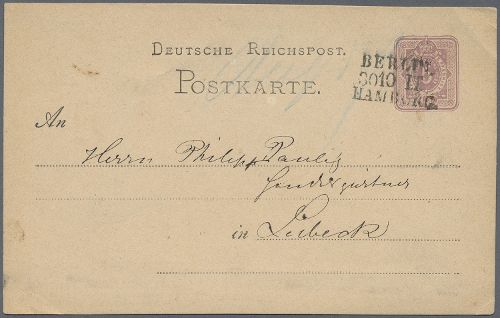 DEUTSCHE REICHSPOST.
POSTKARTE.
BERLIN.
30 10 II
HAMBURG.
An
Herrn Philipp Paulig
Handelsgärtner
in Lübeck